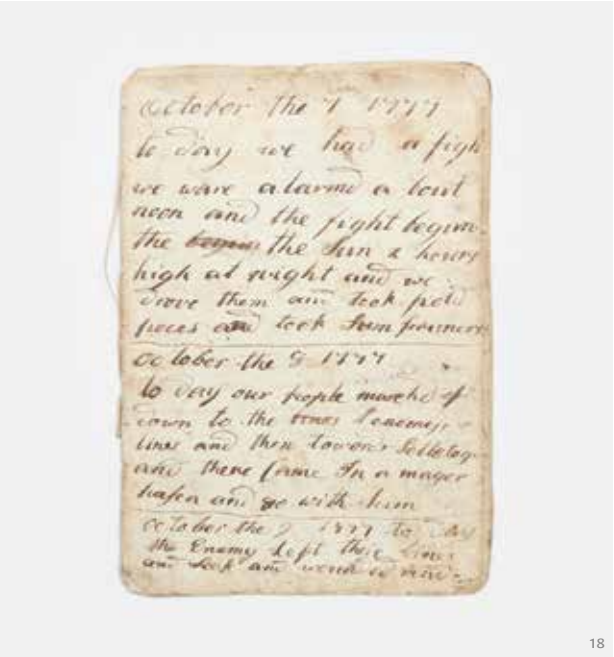 October the 7 1777
to day we had a figh
we ware alarmd a bout
noon and the fight begun
the begun the Sun 2 hours
high at night and we
drove them and took feld
peces and took Sum prusners
October the 8 1777
to day our people marchd
down to the enemys
lines and then toward
and there came In a mager
and go with him
October the 9 1777 to day
the Enemy left their lines
and and
18